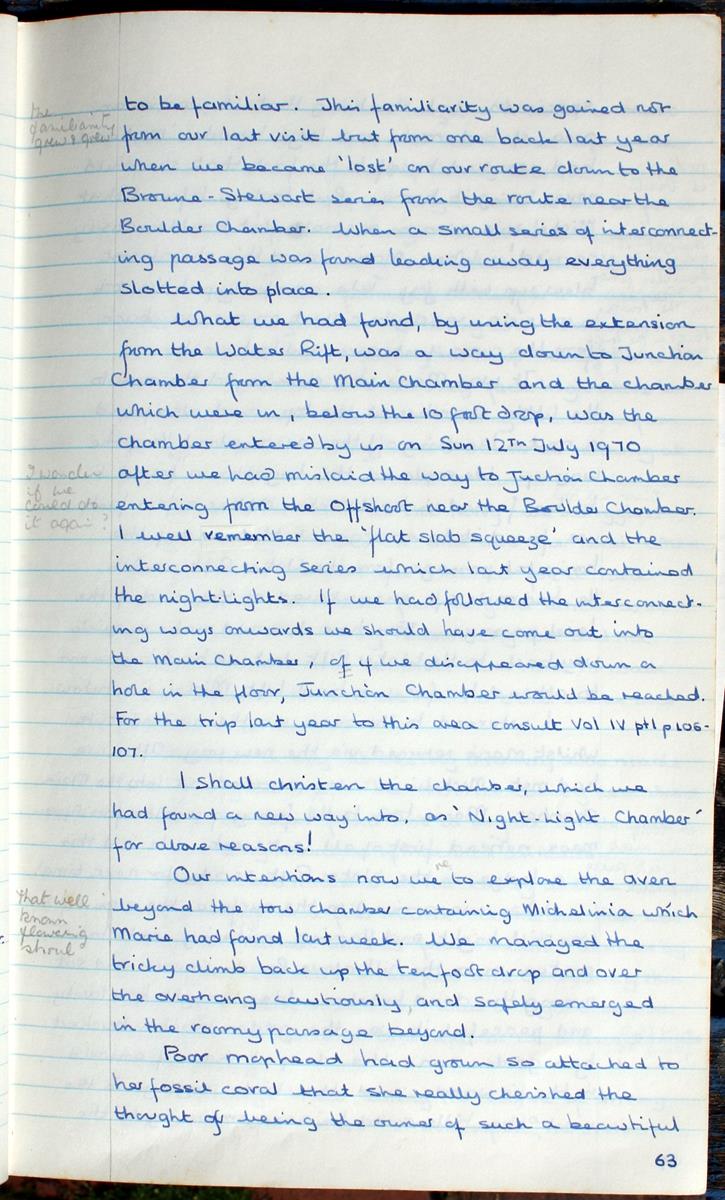 the
familiarity
grew & grew
to be familiar. This familiarity was gained not
from our last visit but from one back last year
when we became 'lost' on our route down to the
Browne-Stewart series from the route near the
Boulder Chamber. When a small series of interconnect-
ing passage was found leading away everything
slotted into place.
What we had found, by using the extension
from the Water Rift, was a way down to Junction
Chamber from the Main Chamber and the chamber
which were in, below the 10 foot drop, was the
chamber entered by us on Sun 12TH July 1970
I wonder
if we
could do
it again?
after we had mislaid the way to Juction Chamber
entering from the Offshoot near the Boulder Chamber.
I well remember the 'flat slab squeeze' and the
interconnecting series which last year contained
the night-lights. If we had followed the interconnect-
ing ways onwards we should have come out into
the Main Chamber, of if we disappeared down a
hole in the floor, Junction Chamber would be reached.
For the trip last year to this area consult Vol IV pt1 p106-
107.
I shall christen the chamber, which we
had found a new way into, as 'Night-Light Chamber'
for above reasons!
Our intentions now we re to explore the aven
that well
known
flowering
shrub
beyond the low chamber containing Michelinia which
Marie had found last week. We managed the
tricky climb back up the ten foot drop and over
the overhang cautiously, and safely emerged
in the roomy passage beyond.
Poor mophead had grown so attached to
her fossil coral that she really cherished the
thought of being the owner of such a beautiful
63